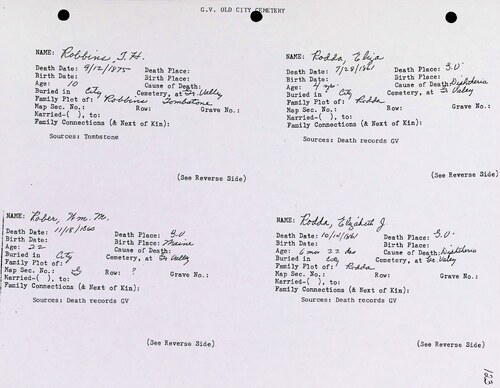 G.V. OLD CITY CEMETERY
NAME: Robbins, T. H.
Death Date: 9/12/1875 Death Place:
Birth Date: Birth Place:
Age: 10 Cause of Death:
Buried in City Cemetery, at Gr. Valley
Family Plot of: Robbins Tombstone
Map Sec. No.: Row: Grave No.:
Married-( ), to:
Family Connections (& Next of Kin):
Sources: Tombstone
(See Reverse Side)
NAME: Rodda, Eliza
Death Date: 7/28/1861 Death Place: G.V.
Birth Date: Birth Place:
Age: 4 yrs. Cause of Death: Diphtheria
Buried in City Cemetery, at Gr. Valley
Family Plot of: Rodda
Map Sec. No.: Row: Grave No.:
Married-( ), to:
Family Connections (& Next of Kin):
Sources: Death records GV
(See Reverse Side)
NAME: Rober, Wm. M.
Death Date: 11/18/1860 Death Place: G.V.
Birth Date: Birth Place: Maine
Age: 22 Cause of Death:
Buried in City Cemetery, at Gr. Valley
Family Plot of:
Map Sec. No.: Row: ? Grave No.:
Married-( ), to:
Family Connections (& Next of Kin):
Sources: Death records GV
(See Reverse Side)
NAME: Rodda, Elizabeth J
Death Date: 10/10/1861 Death Place: G.V.
Birth Date: Birth Place:
Age: 6 mos 22 das Cause of Death: Diphtheria
Buried in City Cemetery, at Gr. Valley
Family Plot of: Rodda
Map Sec. No.: Row: Grave No.:
Married-( ), to:
Family Connections (& Next of Kin):
Sources: Death records GV
(See Reverse Side)